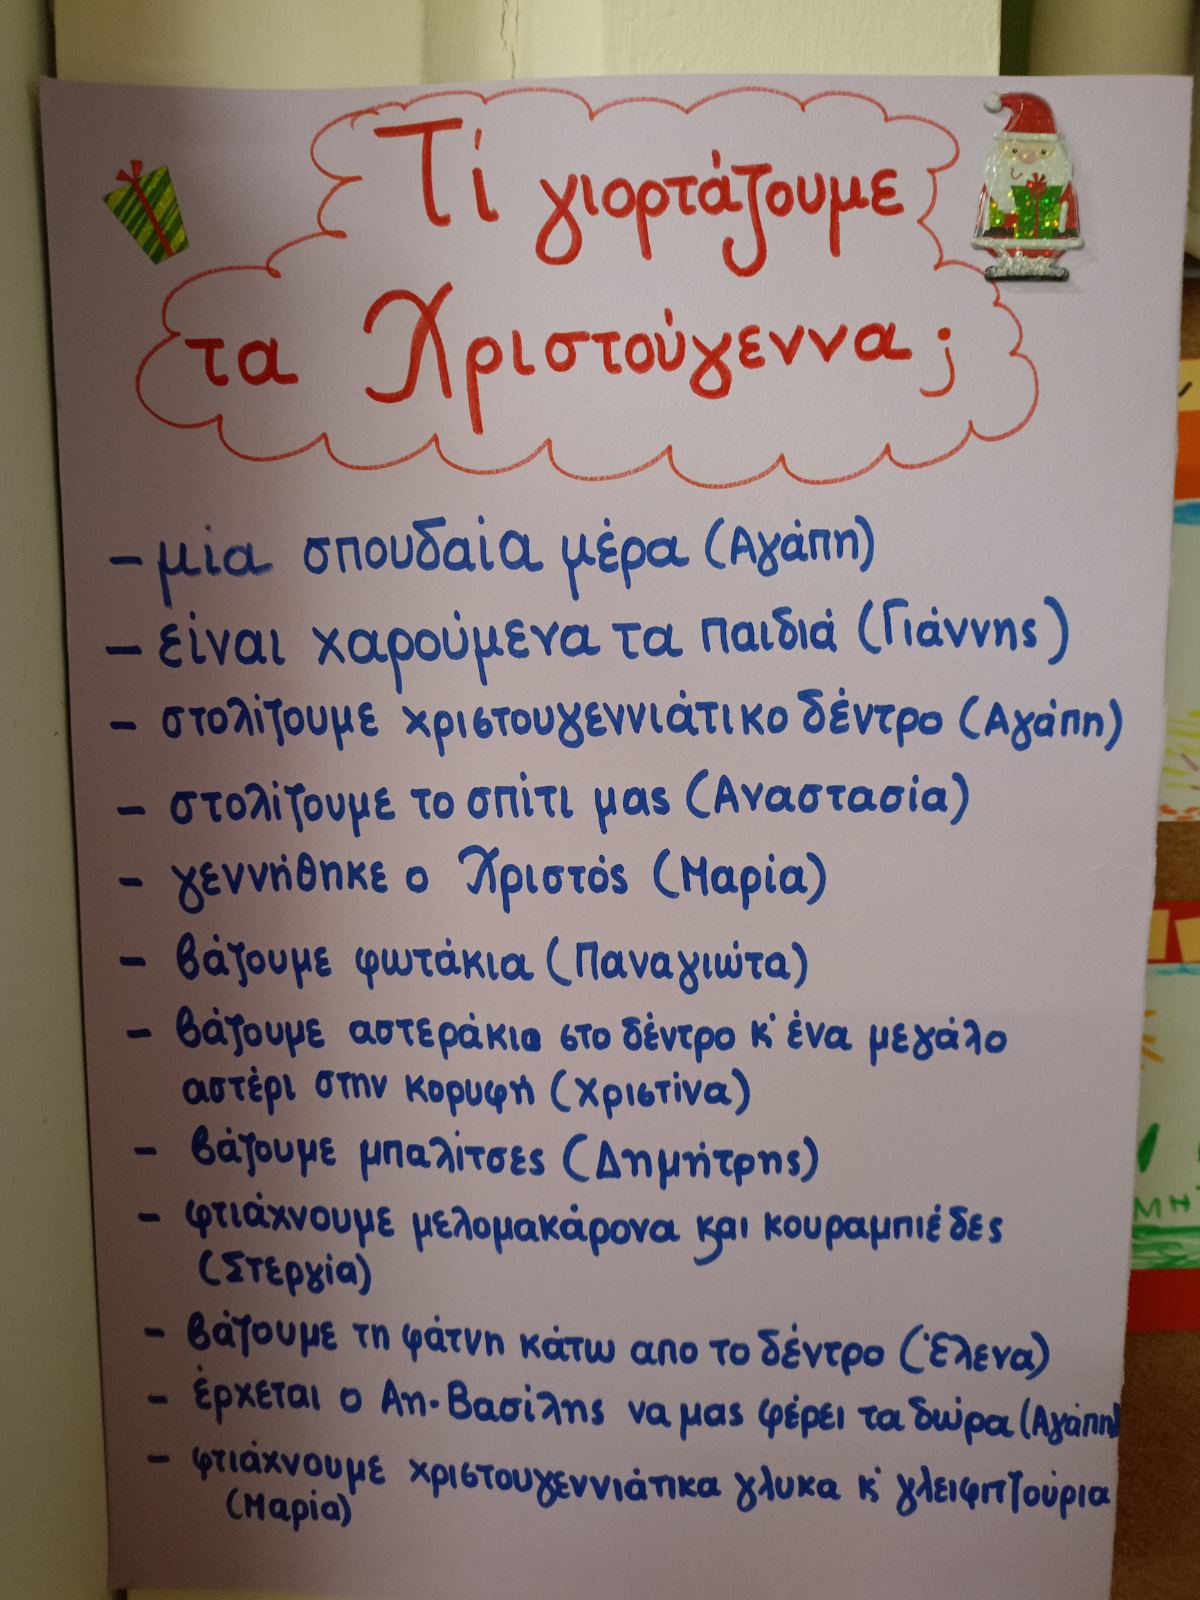 Τί γιορτάζουμε
τα Χριστούγεννα;
- μία σπουδαία μέρα (Αγάπη)
- είναι χαρούμενα τα παιδιά (Γιάννης)
- στολίζουμε χριστουγεννιάτικο δέντρο (Αγάπη)
- στολίζουμε το σπίτι μας (Αναστασία)
- γεννήθηκε ο Χριστός (Μαρία)
- βάζουμε φωτάκια (Παναγιώτα)
- βάζουμε αστεράκια στο δέντρο κ' ένα μεγάλο
αστέρι στην κορυφή (Χριστίνα)
- βάζουμε μπαλίτσες (Δημήτρης)
- φτιάχνουμε μελομακάρονα και κουραμπιέδες
(Στεργία)
- βάζουμε τη φάτνη κάτω απο το δέντρο (Έλενα)
- έρχεται ο Αη-Βασίλης να μας φέρει τα δώρα (Αγάπη)
- φτιάχνουμε χριστουγεννιάτικα γλυκα κ' γλειφιτζούρια
(Μαρία)